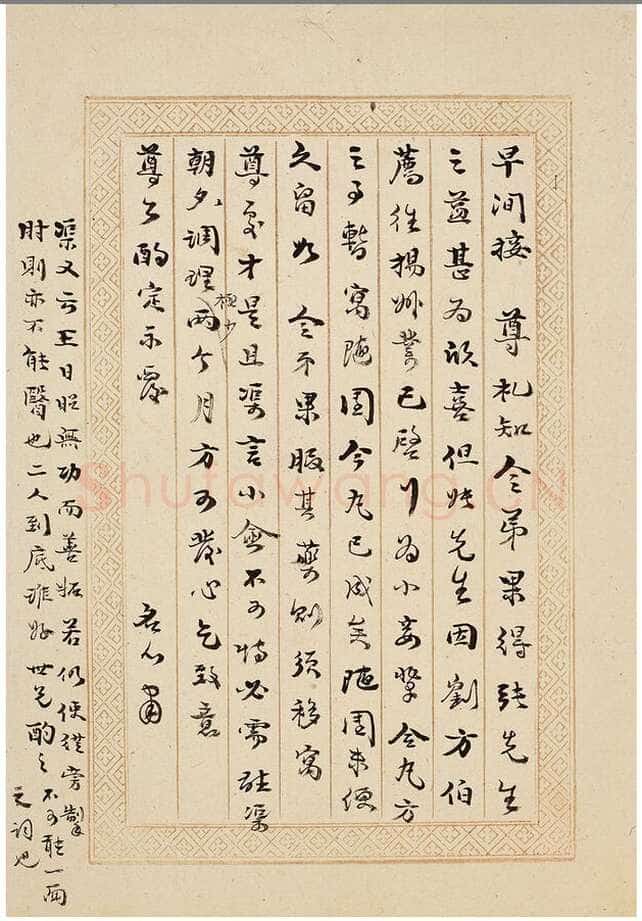 早間接 尊札知令弟果得張先生
之益甚為欣喜但張先生因劉方伯
薦往揚州業已啓行為小妾擎合丸方
之事暫寓隨園今丸已成矣隨園未便
久留如 令弟果服其藥則須移寓
尊處才是且渠言小愈不可恃必需耽渠
朝夕調理極少兩个月方可發心乞致意
尊公酌定示我
名心肅
渠又云王日照無功而善妬若仍使從旁掣
肘則亦不能醫也二人到底誰好 世兄酌之不可聽一面
之詞也
Shufawang.CN